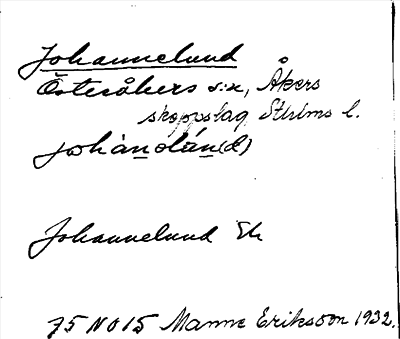 Johannelund
Österåkers s:n, Åkers
skeppslag Sthlms l.
johànəlún(d)
Johannelund Ek
75 NO 15 Manne Eriksson 1932.